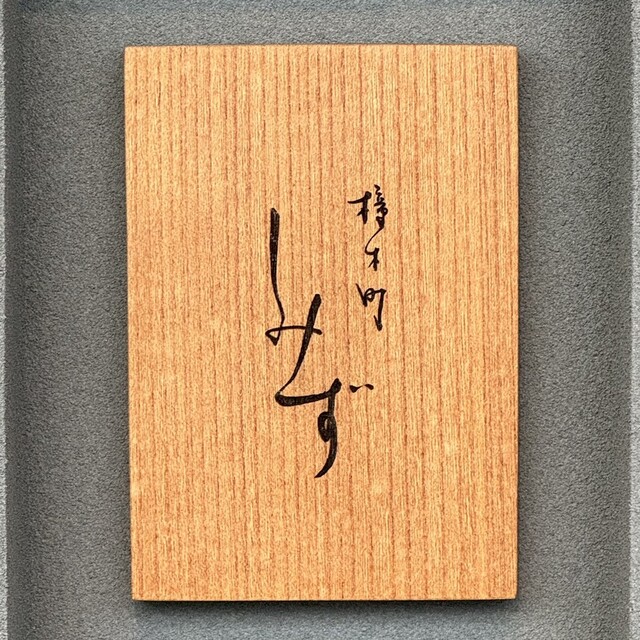 橦木町
しみず